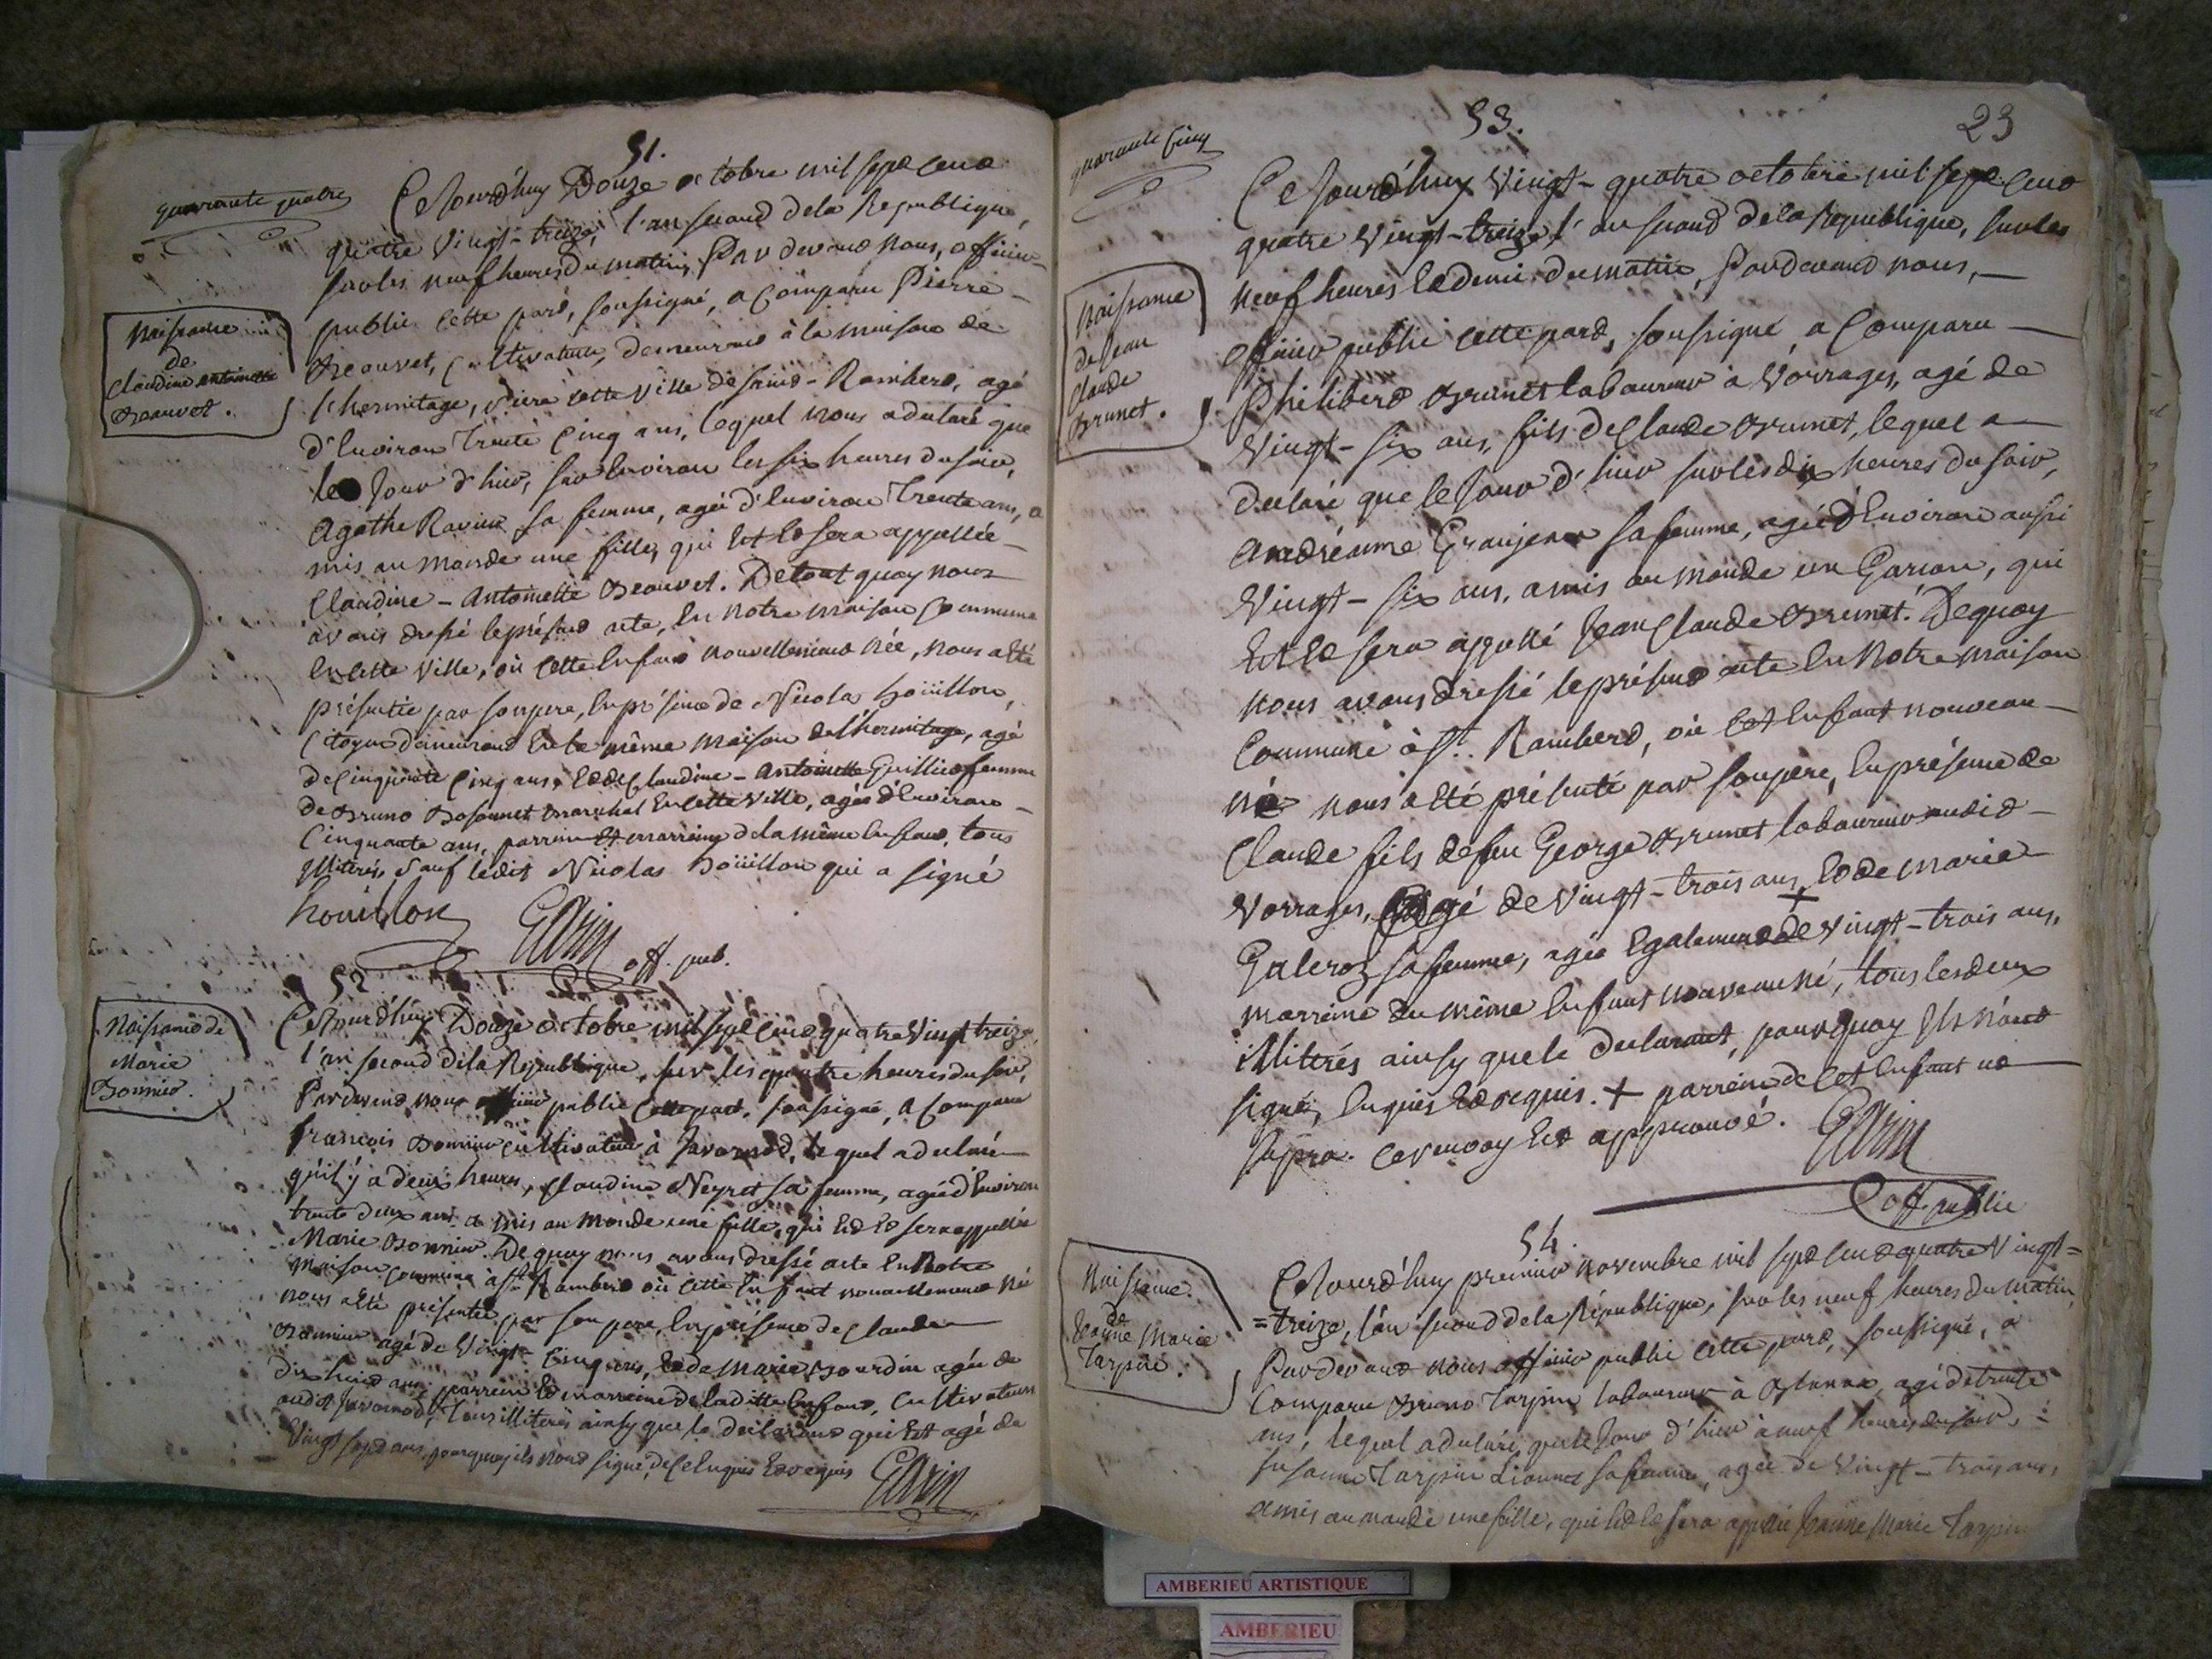 quarante quatre
51.
Ce Jourd'huy Douze octobre mil sept cent
quatre Vingt-treize, l'an second de la Republique,
sur les neuf heures du matin, Par devant nous, officier
public cette part, soussigné, a Comparu Pierre
Beauvet, Cultivateur, demeurant à la maison de
l'hermitage, rière cette Ville de saint-Rambert, agé
d'Environ Trente Cinq ans, lequel nous a declaré que
le Jour d'hier, sur Environ les six heures du soir,
Agathe Ravier sa femme, agée d'Environ Trente ans, a
mis au monde une fille, qui Est Et sera appellée
Claudine-Antoinette Beauvet. De tout quoy nous
avons dressé le présent acte, En notre maison Commune
En cette Ville, où cette Enfant nouvellement née, nous a Eté
présentée par son pere, En présence de Nicolas hoüillon,
Citoyen demeurant En la même maison de l'hermitage, agé
de Cinquante Cinq ans, Et de Claudine-Antoinette Guillied femme
de Bruno Bosonnet marechal En cette Ville, agée d'Environ
Cinquante ans, parrein Et marreine de la même Enfant, tous
Illiterés, sauf ledit Nicolas hoüillon qui a signé
houillon
off. pub.
Naissance
de
Claudine antoinette
Beauvet.
52
Naissance de
Marie
Bonnier.
Ce Jourd'huy Douze octobre mil sept cent quatre Vingt treize,
l'an second de la Republique, sur les quatre heures du soir,
Pardevant nous officier public Cette part, soussigné, a Comparu
francois Bonnier Cultivateur à Javornod, lequel a declaré
qu'il y a deux heures, Claudine Neyret sa femme, agée d'Environ
trente deux ans a mis au monde une fille, qui Est Et sera appellée
Marie Bonnier. De quoy nous avons dressé acte En notre
maison commune à St. Rambert où cette Enfant nouvellement né
nous a Eté présentée par son pere, En présence de Claude
Bonnier agé de Vingt Cinq ans, Et de Marie Bourdin agée de
dix huit ans, parrein Et marreine de la ditte Enfant, Cultivateurs
audit Javornod, Tous illiterés ainsy que le declarant qui Est agé de
Vingt sept ans, pourquoy ils n'ont signé, de ce Enquis Et requis
quarante Cinq
53.
23
Naissance
de Jean
Claude
Brunet.
Ce Jourd'huy Vingt-quatre octobre mil sept cent
quatre Vingt-treize, l'an second de la Republique, sur les
neuf heures Et demie du matin, Pardevant nous,
officier public cette part, soussigné, a Comparu
Philibert Brunet laboureur à Vorrages, agé de
Vingt-six ans, fils de Claude Brunet, lequel a
declaré que le Jour d'hier sur les dix heures du soir,
Andréanne Granjean sa femme, agée d'Environ aussi
Vingt-six ans, a mis au monde un Garçon, qui
Est Et sera appellé Jean Claude Brunet. De quoy
nous avons dressé le présent acte En notre maison
Commune à St. Rambert, où Cet Enfant nouveau
né nous a Eté présenté par son père, En présence de
Claude fils de feu George Brunet laboureur audit
Vorrages, agé de Vingt-trois ans + Et de Marie
Galeroz sa femme, agée Egalement de Vingt-trois ans,
marreine du même Enfant nouveau né, tous les deux
illiterés ainsy que le declarant, pourquoy Ils n'ont
signé, Enquis Et requis. + parrein de Cet Enfant ut
supra. Ce renvoy Est approuvé.
off. public
54.
Naissance
de
Jeanne Marie
Tarpin.
Ce Jourd'huy premier novembre mil sept cent quatre Vingt=
=treize, l'an second de la République, sur les neuf heures du matin,
Pardevant nous officier public cette part, soussigné, a
Comparu Bruno Tarpin laboureur à agé de trente
ans, lequel a declaré, que le Jour d'hier à neuf heures du soir,
Susanne Tarpin sa femme, agée de Vingt-trois ans,
a mis au monde une fille, qui Est Et sera appellée Jeanne Marie Tarpin
AMBERIEU ARTISTIQUE
AMBERIEU